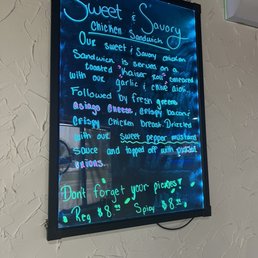 Sweet & Savory
Chicken Sandwich
Our sweet & savory chicken
Sandwich is served on a
toasted "Kaiser Roll"
with our garlic & chive aioli.
Followed by fresh greens
Asiago Cheese, crispy bacon &
crispy chicken breast. Drizzled
with our sweet pepper mustard
sauce and topped off with
onions.
Don't forget your pickles!
Reg $8.99 Spicy $8.99